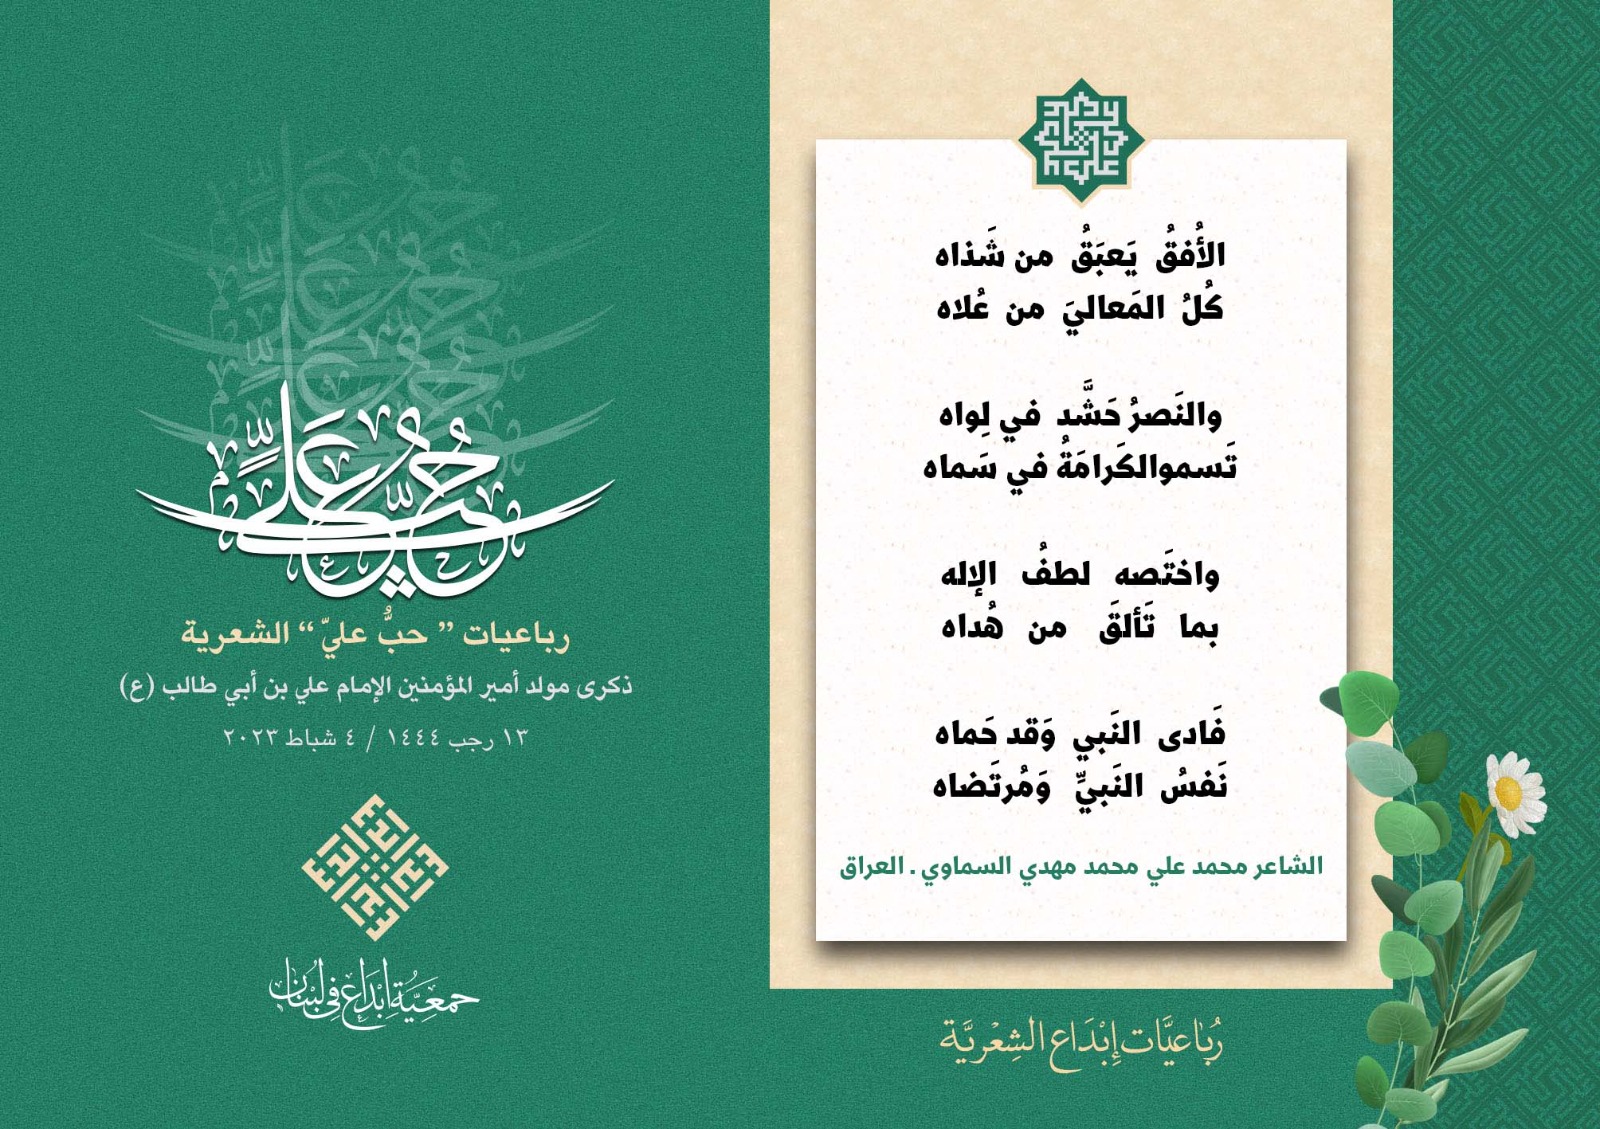 الأُفقُ يَعبَقُ من شَذاه
كُلُ المَعاليَ من عُلاه
والنَصرُ حَشَّد في لِواه
تَسموالكَرامَةُ في سَماه
واختَصه لطفُ الإله
بما تَألقَ من هُداه
فَادى النَبي وَقد حَماه
نَفسُ النَبيِّ وَمُرتَضاه
الشاعر محمد علي محمد مهدي السماوي . العراق
رُبَاعيَّات إِبْدَاع الشِعْريَّة
حُبُّ عَلِيٍّ
رباعيات ” حبُّ عليّ “ الشعرية
ذكرى مولد أمير المؤمنين الإمام علي بن أبي طالب (ع)
١٣ رجب ١٤٤٤ / ٤ شباط ٢٠٢٣
جمعيّة إبْدَاع في لبْنَان